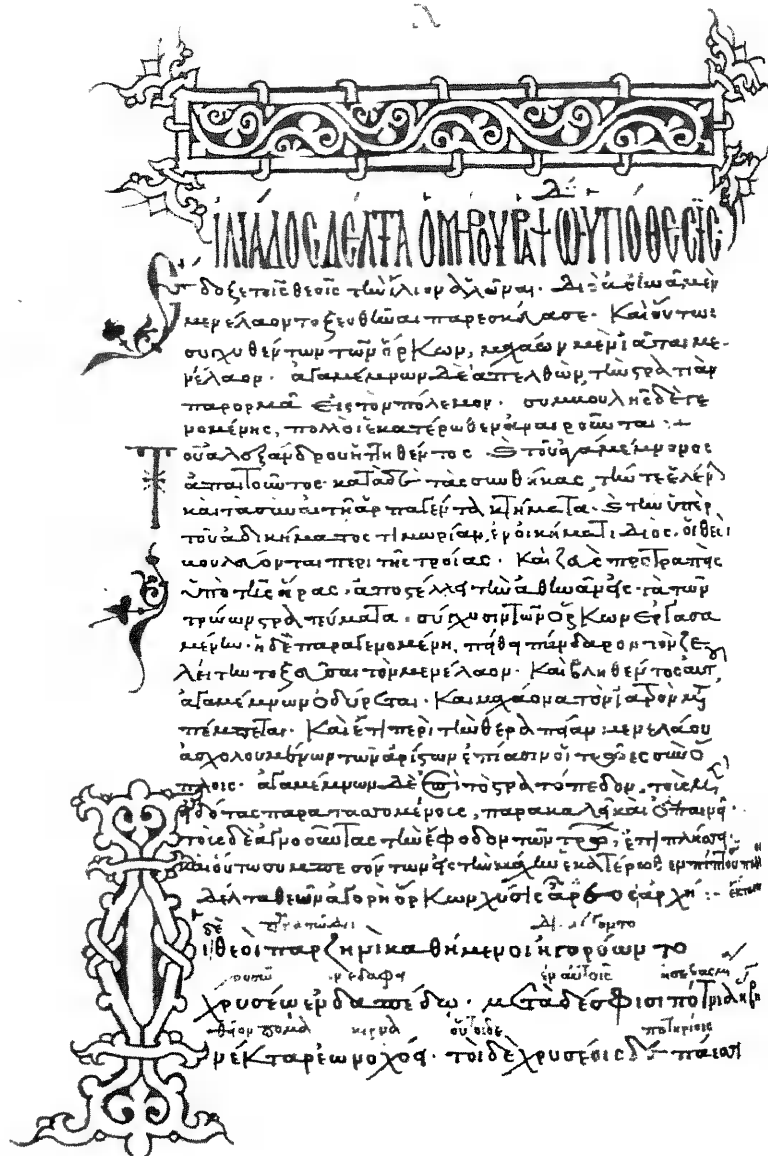 ἰλιάδος δέλτα ὁμήρου ῥαψωδ ὑπόθεσις
δοξε τοῖς θεοῖς τὴν ἴλιον ἁλῶναι. Διὸ καὶ ἡ ἀθηνᾶ μὲν
μενέλαον τοξευθῆναι παρεσκεύασε. Καὶ οὕτως
συγχυθέντων τῶν ὅρκων, μαχάων μὲν ἰᾶται με-
νέλαον. ἀγαμέμνων δὲ ἀπελθὼν, τὴν στρατιὰν
παρορμᾶ εἰς τὸν πόλεμον. συμβουλῆς δὲ γε
νομένης, πολλοὶ ἑκατέρωθεν ἀναιροῦνται :+
Τοῦ ἀλεξάνδρου ἡττηθέντος. τοῦ ἀγαμέμνονος
ἀπαιτοῦντος κατὰ τὰς συνθήκας, τήν τε ἑλένην
καὶ τὰ σὺν αὐτῆ ἁρπαγέντα κτήματα. τὴν ὑπὲρ
τοῦ ἀδικήματος τιμωρίαν, ἐν οἰκήματι Διὸς. οἱ θεοὶ
βουλεύονται περὶ τῆς τροίας. Καὶ ζεὺς προτραπεὶς
ὑπὸ τῆς ἥρας. ἀποστέλλει τὴν ἀθηνᾶν εἰς τὰ τῶν
τρώων στρατεύματα. σύγχυσιν τῶν ὅρκων ἐργασα
μένην. ἡ δὲ παραγενομένη, πείθει πάνδαρον τὸν ζε-
λείτην τοξεῦσαι τὸν μενέλαον. Καὶ βληθέντος αὐτοῦ,
ἀγαμέμνων ὀδύρεται. Καὶ μαχάονα τὸν ἰατρὸν
πέμπεται. Καὶ ἔτι περὶ τὴν θεραπείαν μενελάου
ἀσχολουμένων τῶν ἀρίστων ἐπίασιν οἱ τρῶες σὺν ὅ
πλοις. ἀγαμέμνων δὲ τὸ στρατόπεδον, τοῖς
παραταττομένοις, παρακαλεῖ καὶ ἐπαινεῖ.
τοὺς δὲ ἀγνοοῦντας τὴν ἔφοδον τῶν τρώων, ἐπιπλήττει.
καὶ οὕτω συμπεσόντων εἰς τὴν μάχην ἑκατέρωθεν πίπτουσιν
Δέλτα θεῶν ἀγορὴ ὅρκων χύσις ἄρεος ἀρχή :-
οἱ δὲ θεοὶ παρ ζηνὶ καθήμενοι ἠγορόωντο
χρυσέω ἐν δαπέδω. μετὰ δέ σφισι πότνια ἥβη
νέκταρ ἐωνοχόει. τοὶ δὲ χρυσέοις δεπάεσσι